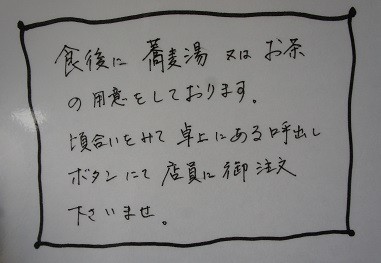 食後に 蕎麦湯 又は お茶
の用意をしております。
頃合いをみて 卓上にある呼出し
ボタンにて 店員に御注文
下さいませ。